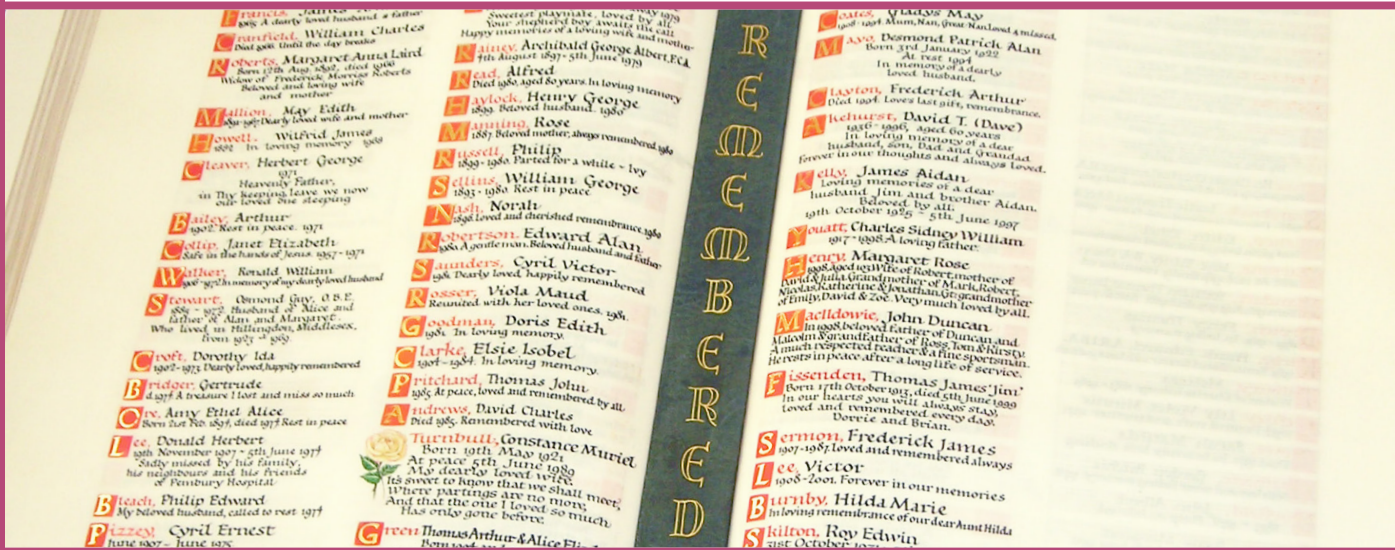 Francis, James
A dearly loved husband & father
Cranfield, William Charles
Died 1966. Until the day breaks
Roberts, Margaret Anna Laird
Born 12th Aug. 1892, died 1966
Widow of Frederick Morriss Roberts
Beloved and loving wife
and mother
Mallion, May Edith
Dearly loved wife and mother
Howell, Wilfrid James
1882 In loving memory 1968
Cleaver, Herbert George
1971
Heavenly Father,
in Thy keeping leave we now
our loved one sleeping
Bailey, Arthur
1902. Rest in peace. 1971
Collip, Janet Elizabeth
Safe in the hands of Jesus. 1957-1971
Walker, Ronald William
In memory of my dearly loved husband
Stewart, Osmond Guy, O.B.E.
1885 - 1972. Husband of Alice and
father of Alan and Margaret.
Who lived in Hillingdon, Middlesex,
from 1923 - 1969.
Croft, Dorothy Ida
1902-1973. Dearly loved, happily remembered
Bridger, Gertrude
d.1974 A treasure I lost and miss so much
Ore, Amy Ethel Alice
Born 21st Feb. 1894, died 1974 Rest in peace
Lee, Donald Herbert
19th November 1907 - 5th June 1974
Sadly missed by his family,
his neighbours and his friends
of Pembury Hospital
Bleach, Philip Edward
My beloved husband, called to rest 1974
Pizzey, Cyril Ernest
June 1907 - June 1975
Sweetest playmate, loved by all,
Your shepherd boy awaits the call
Happy memories of a loving wife and mother
Rainey, Archibald George Albert, F.C.A.
4th August 1897 - 5th June 1979
Read, Alfred
Died 1980, aged 80 years. In loving memory
Haylock, Henry George
1899. Beloved husband. 1980
Manning, Rose
1887. Beloved mother, always remembered. 1980
Russell, Philip
1899 - 1980. Parted for a while ~ Ivy
Sellins, William George
1893 - 1980. Rest in peace
Nash, Norah
1898. loved and cherished remembrance. 1980
Robertson, Edward Alan
1980. A gentle man. Beloved husband and father
Saunders, Cyril Victor
1981. Dearly loved, happily remembered
Rosser, Viola Maud
Reunited with her loved ones. 1981.
Goodman, Doris Edith
1981. In loving memory.
Clarke, Elsie Isobel
1904 - 1984. In loving memory.
Pritchard, Thomas John
1985. At peace, loved and remembered by all
Andrews, David Charles
Died 1985. Remembered with love
Turnbull, Constance Muriel
Born 19th May 1921
At peace 5th June 1989
My dearly loved wife.
It's sweet to know that we shall meet,
Where partings are no more,
And that the one I loved so much
Has only gone before.
Green Thomas Arthur & Alice
REMEMBERED
Coates, Gladys May
1908 - 1994. Mum, Nan, Great Nan loved & missed.
Mayo, Desmond Patrick Alan
Born 3rd January 1922
At rest 1994
In memory of a dearly
loved husband.
Clayton, Frederick Arthur
Died 1994. Love's last gift, remembrance.
Akehurst, David T. (Dave)
1936 - 1996, aged 60 years
In loving memory of a dear
husband, son, Dad and Grandad
Forever in our thoughts and always loved.
Kelly, James Aidan
Loving memories of a dear
husband Jim and brother Aidan.
Beloved by all.
19th October 1925 - 5th June 1997
Youatt, Charles Sidney William
1917 - 1998. A loving father.
Henry, Margaret Rose
1998, aged 101 Wife of Robert, mother of
David & Julia, Grandmother of Mark, Robert,
Nicolas, Katherine & Jonathan, Gt. grandmother
of Emily, David & Zoe. Very much loved by all.
MacIldowie, John Duncan
In 1998, beloved father of Duncan and
Malcolm & grandfather of Ross, Tom & Kirsty.
A much respected teacher & a fine sportsman.
He rests in peace after a long life of service.
Fissenden, Thomas James 'Jim'
Born 17th October 1913, died 5th June 1999
In our hearts you will always stay,
loved and remembered every day.
Dorrie and Brian.
Sermon, Frederick James
1907 - 1987. loved and remembered always
Lee, Victor
1908 - 2001. Forever in our memories
Burnby, Hilda Marie
In loving remembrance of our dear Aunt Hilda
Skilton, Roy Edwin
31st October